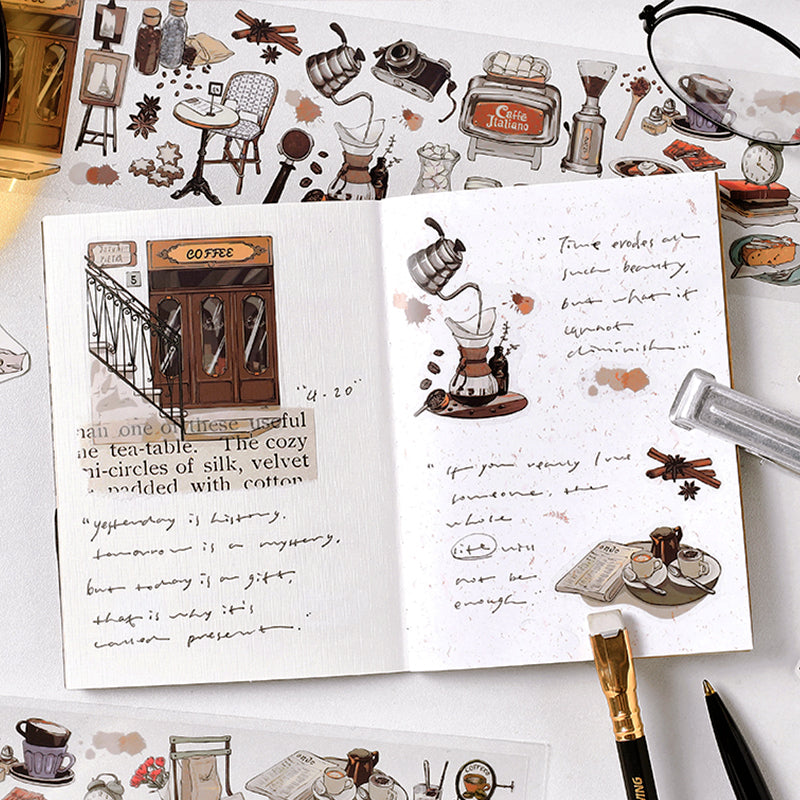 Caffè
Italiano
COFFEE
5
"4-20"
man one of these useful
he tea-table. The cozy
ni-circles of silk, velvet
padded with cotton,
"yesterday is history.
tomorrow is a mystery.
but today is a gift,
that is why it's
called present."
"Time erodes all
such beauty,
but what it
cannot
diminish..."
"if you really love
someone, the
whole
life will
not be
enough"
COFFEE